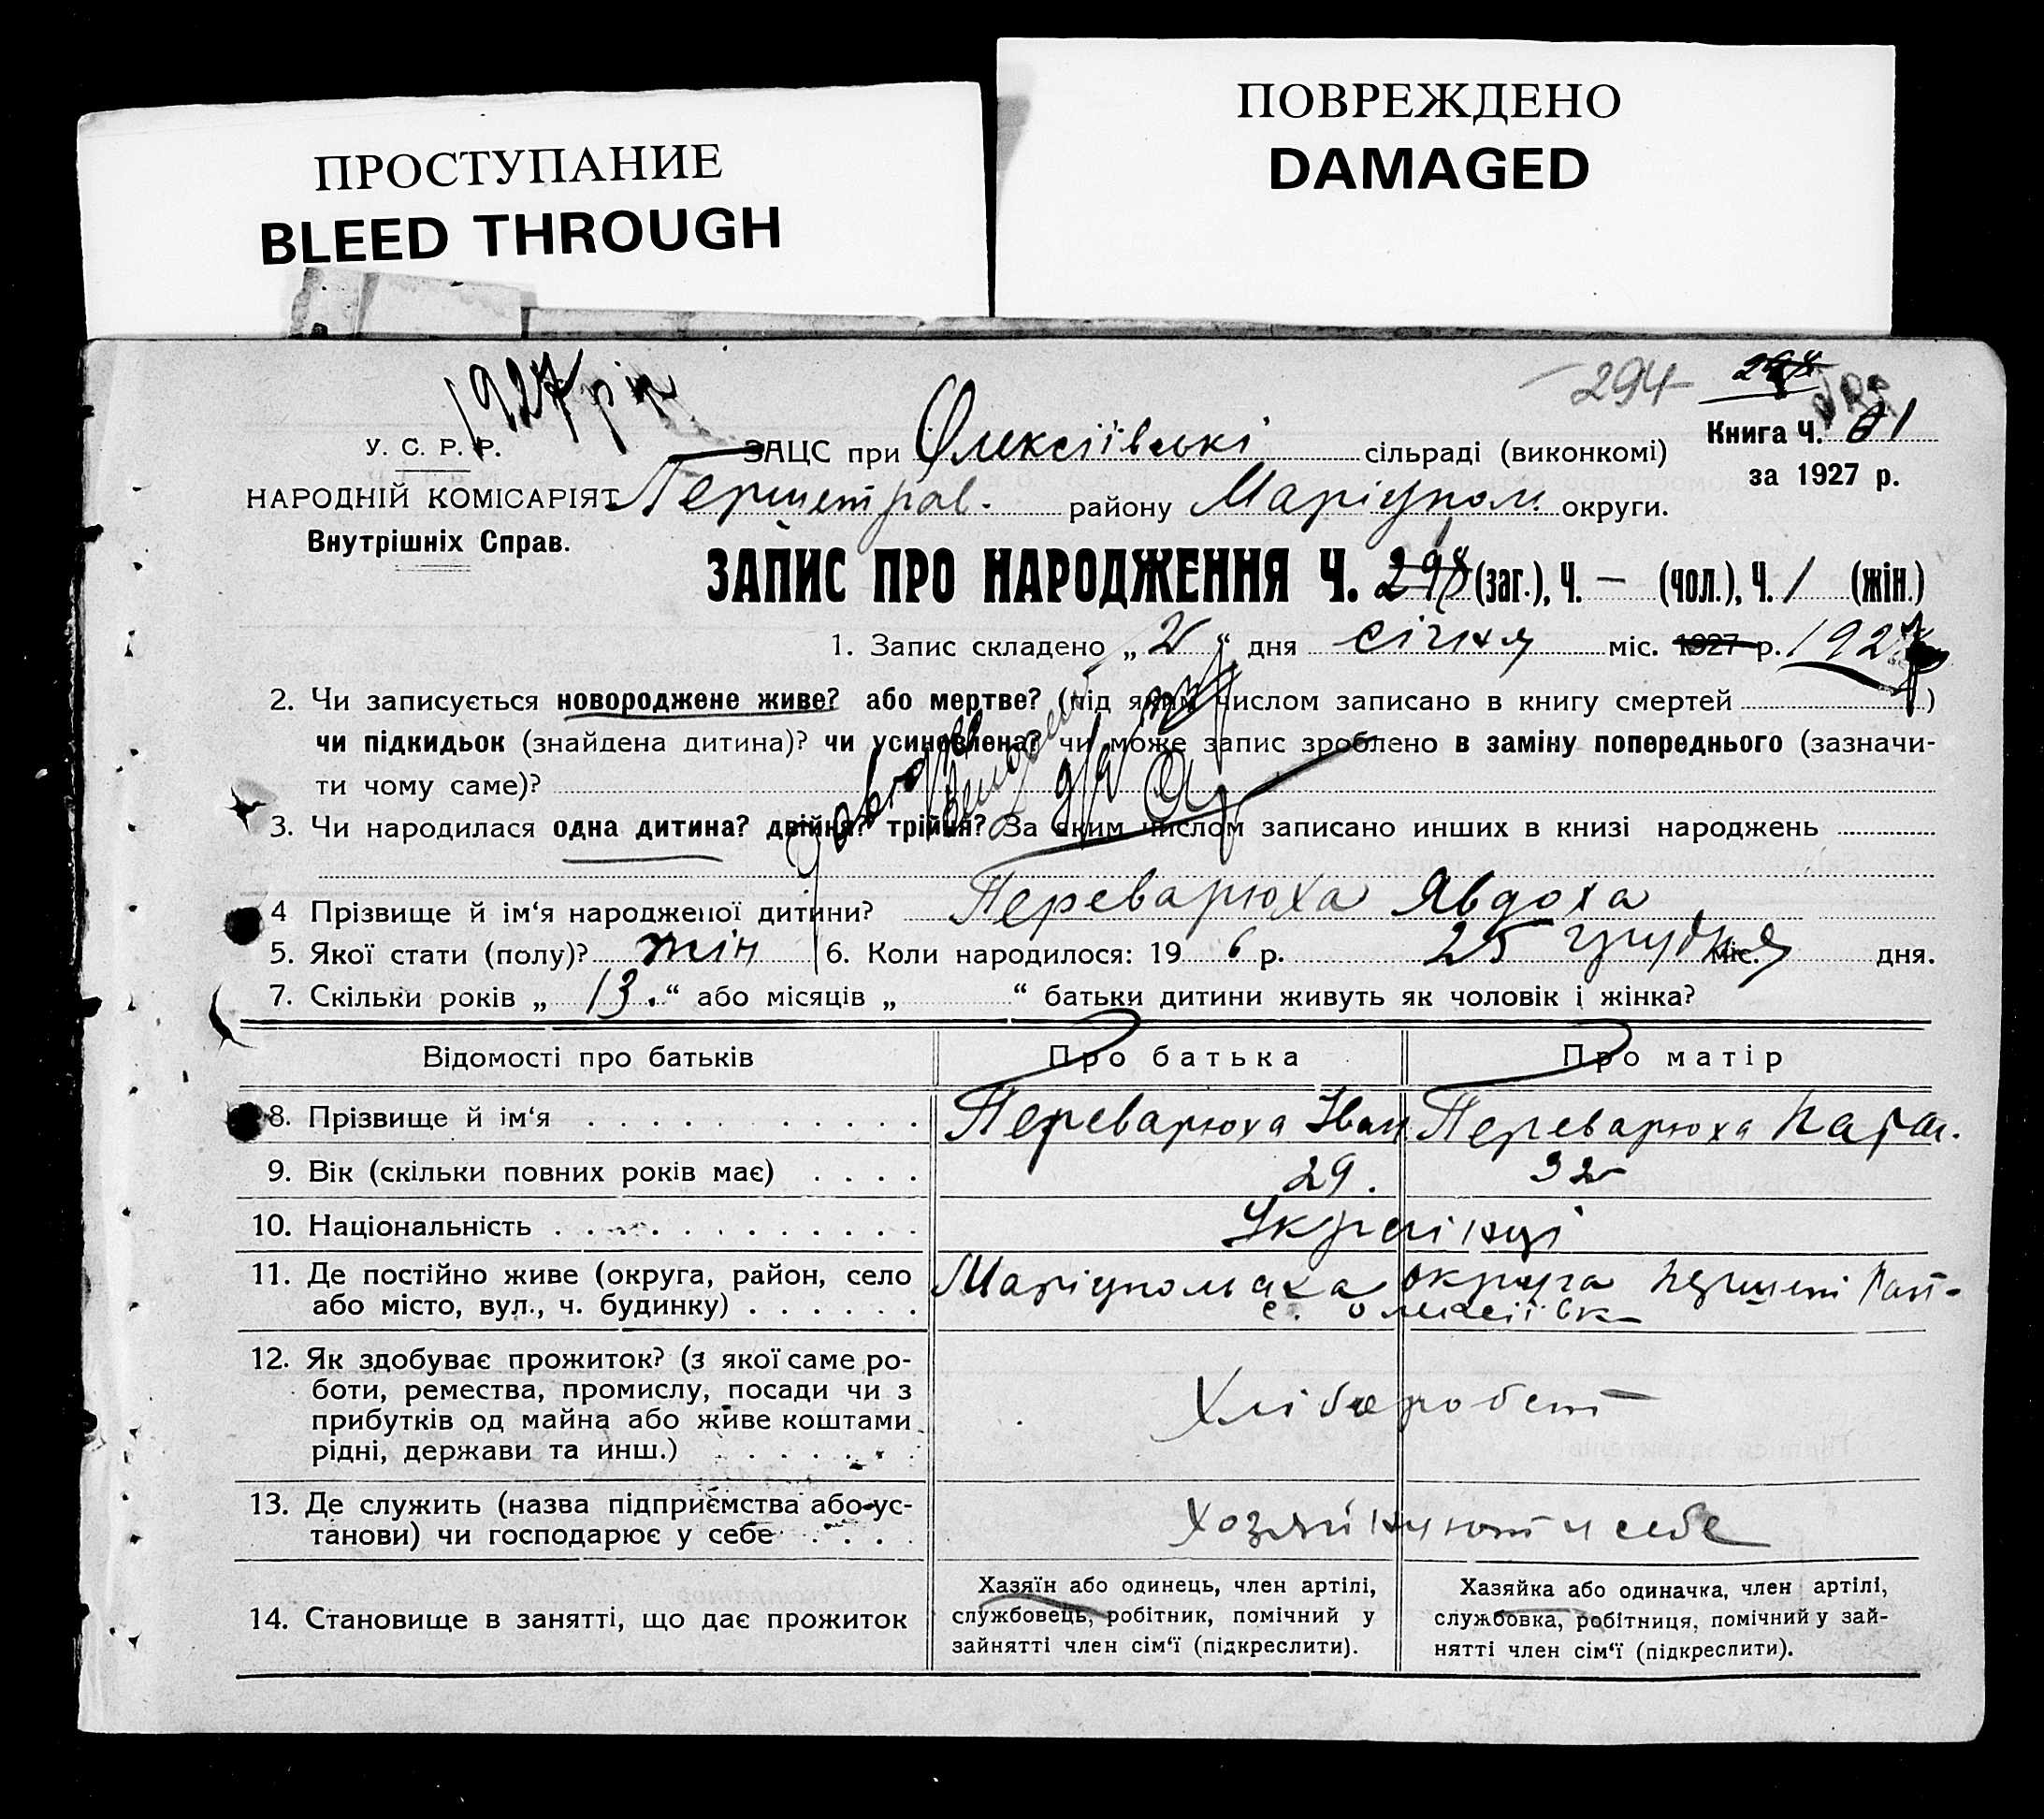 ПРОСТУПАНИЕ
BLEED THROUGH
ПОВРЕЖДЕНО
DAMAGED
1927 рік
294
298
У. С. Р. Р.
НАРОДНІЙ КОМІСАРІЯТ
Внутрішніх Справ.
ЗАЦС при Олексіївські сільраді (виконкомі)
Книга Ч. 61
за 1927 р.
Першетрав. району Маріупол. округи.
ЗАПИС ПРО НАРОДЖЕННЯ Ч. 298 (заг.), Ч. — (чол.), Ч. 1 (жін.)
1. Запис складено „ 2 “ дня січня міс. 1927 р. 1927
2. Чи записується новороджене живе? або мертве? (під яким числом записано в книгу смертей )
чи підкидьок (знайдена дитина)? чи усиновлена? чи може запис зроблено в заміну попереднього (зазначи-
ти чому саме)?
3. Чи народилася одна дитина? двійня? трійня? За яким числом записано инших в книзі народжень
4 Прізвище й ім‘я народженої дитини? Переварюха Явдоха
5. Якої стати (полу)? жін 6. Коли народилося: 19 6 р. 25 грудня міс. дня.
7. Скільки років „ 13. “ або місяців „ “ батьки дитини живуть як чоловік і жінка?
Відомості про батьків Про батька Про матір
8. Прізвище й ім‘я Переварюха Іван Переварюха
9. Вік (скільки повних років має) 29. 32
10. Національність Українці
11. Де постійно живе (округа, район, село
або місто, вул., ч. будинку)
Маріупольська округа
12. Як здобуває прожиток? (з якої саме ро-
боти, ремества, промислу, посади чи з
прибутків од майна або живе коштами
рідні, держави та инш.)
Хлібороби
13. Де служить (назва підприємства або ус-
танови) чи господарює у себе
Хозяйнують у себе
14. Становище в занятті, що дає прожиток
Хазяїн або одинець, член артілі,
службовець, робітник, помічний у
зайнятті член сім‘ї (підкреслити).
Хазяйка або одиначка, член артілі,
службовка, робітниця, помічний у зай-
нятті член сім‘ї (підкреслити).